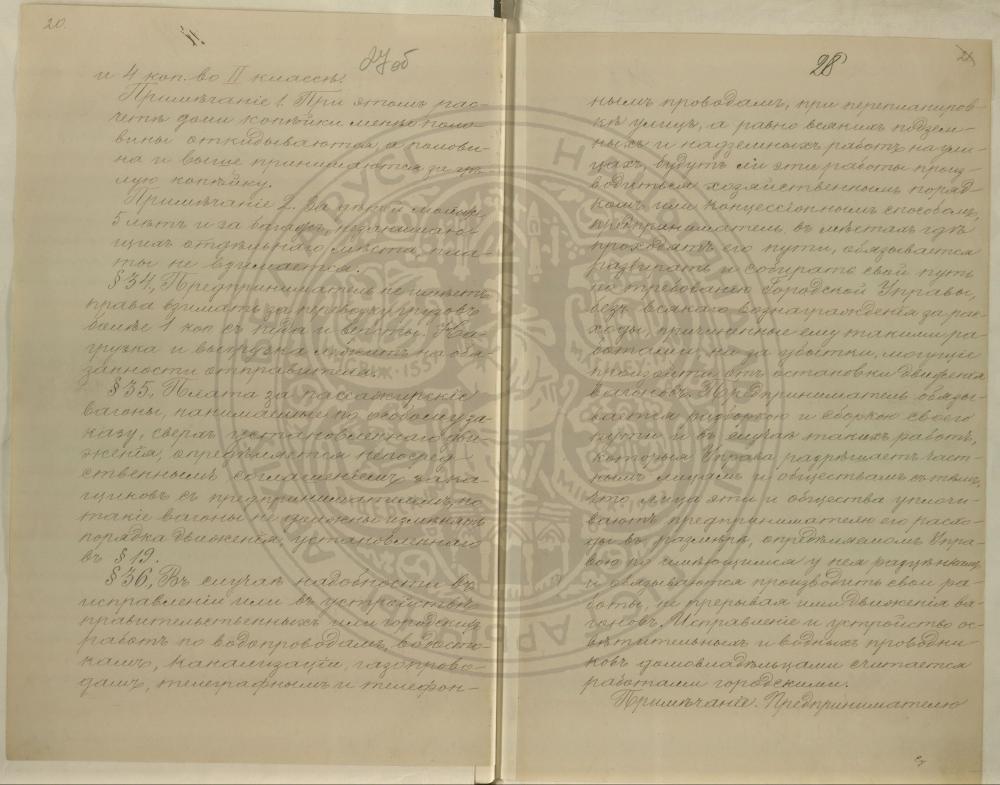 20.
4.
27 об
и 4 коп. во II классѣ.
Примѣчаніе 1. При этомъ рас-
четѣ доли копѣйки менѣе поло-
вины откидываются, а полови-
на и выше принимаются за цѣ-
лую копѣйку.
Примѣчаніе 2. За дѣтей моложе
5 лѣтъ и за багажъ, не занимаю-
щихъ отдѣльнаго мѣста, пла-
ты не взимается.
§ 34. Предприниматель не имѣетъ
права взимать за перевозку грузовъ
болѣе 1 коп. съ пуда и версты. На-
грузка и выгрузка лежитъ на обя-
занности отправителя.
§ 35. Плата за пассажирскіе
вагоны, нанимаемые по особому за-
казу, сверхъ установленнаго дви-
женія, опредѣляется непосред-
ственнымъ соглашеніемъ зака-
щиковъ съ предпринимателемъ, но
такіе вагоны не должны измѣнять
порядка движенія, установленнаго
въ § 19.
§ 36. Въ случаѣ надобности въ
исправленіи или въ устройствѣ
правительственныхъ или городскихъ
работъ по водопроводамъ, водосто-
камъ, канализаціи, газопрово-
дамъ, телеграфнымъ и телефон-
28
21
нымъ проводамъ, при перепланиров-
кѣ улицъ, а равно всякихъ подзем-
ныхъ и надземныхъ работъ на ули-
цахъ, будутъ ли эти работы произ-
водиться хозяйственнымъ поряд-
комъ или концессіоннымъ способомъ,
предприниматель, въ мѣстахъ гдѣ
проходятъ его пути, обязывается
разбирать и собирать свой путь
по требованію Городской Управы,
безъ всякаго вознагражденія за рас-
ходы, причиненные ему такими ра-
ботами, ни за убытки, могущіе
произойти отъ остановки движенія
вагоновъ. Предприниматель обязы-
вается разборкою и сборкою своего
пути и въ случаѣ такихъ работъ,
которыя Управа разрѣшаетъ част-
нымъ лицамъ и обществамъ съ тѣмъ,
что лица эти и общества уплачи-
ваютъ предпринимателю его расхо-
ды въ размѣрѣ, опредѣляемомъ Упра-
вою по имѣющимся у нея расцѣнкамъ,
и обязываются производить свои ра-
боты, не прерывая ими движенія ва-
гоновъ. Исправленіе и устройство ос-
вѣтительныхъ и водныхъ проводни-
ковъ домовладѣльцами считается
работами городскими.
Примѣчаніе. Предпринимателю